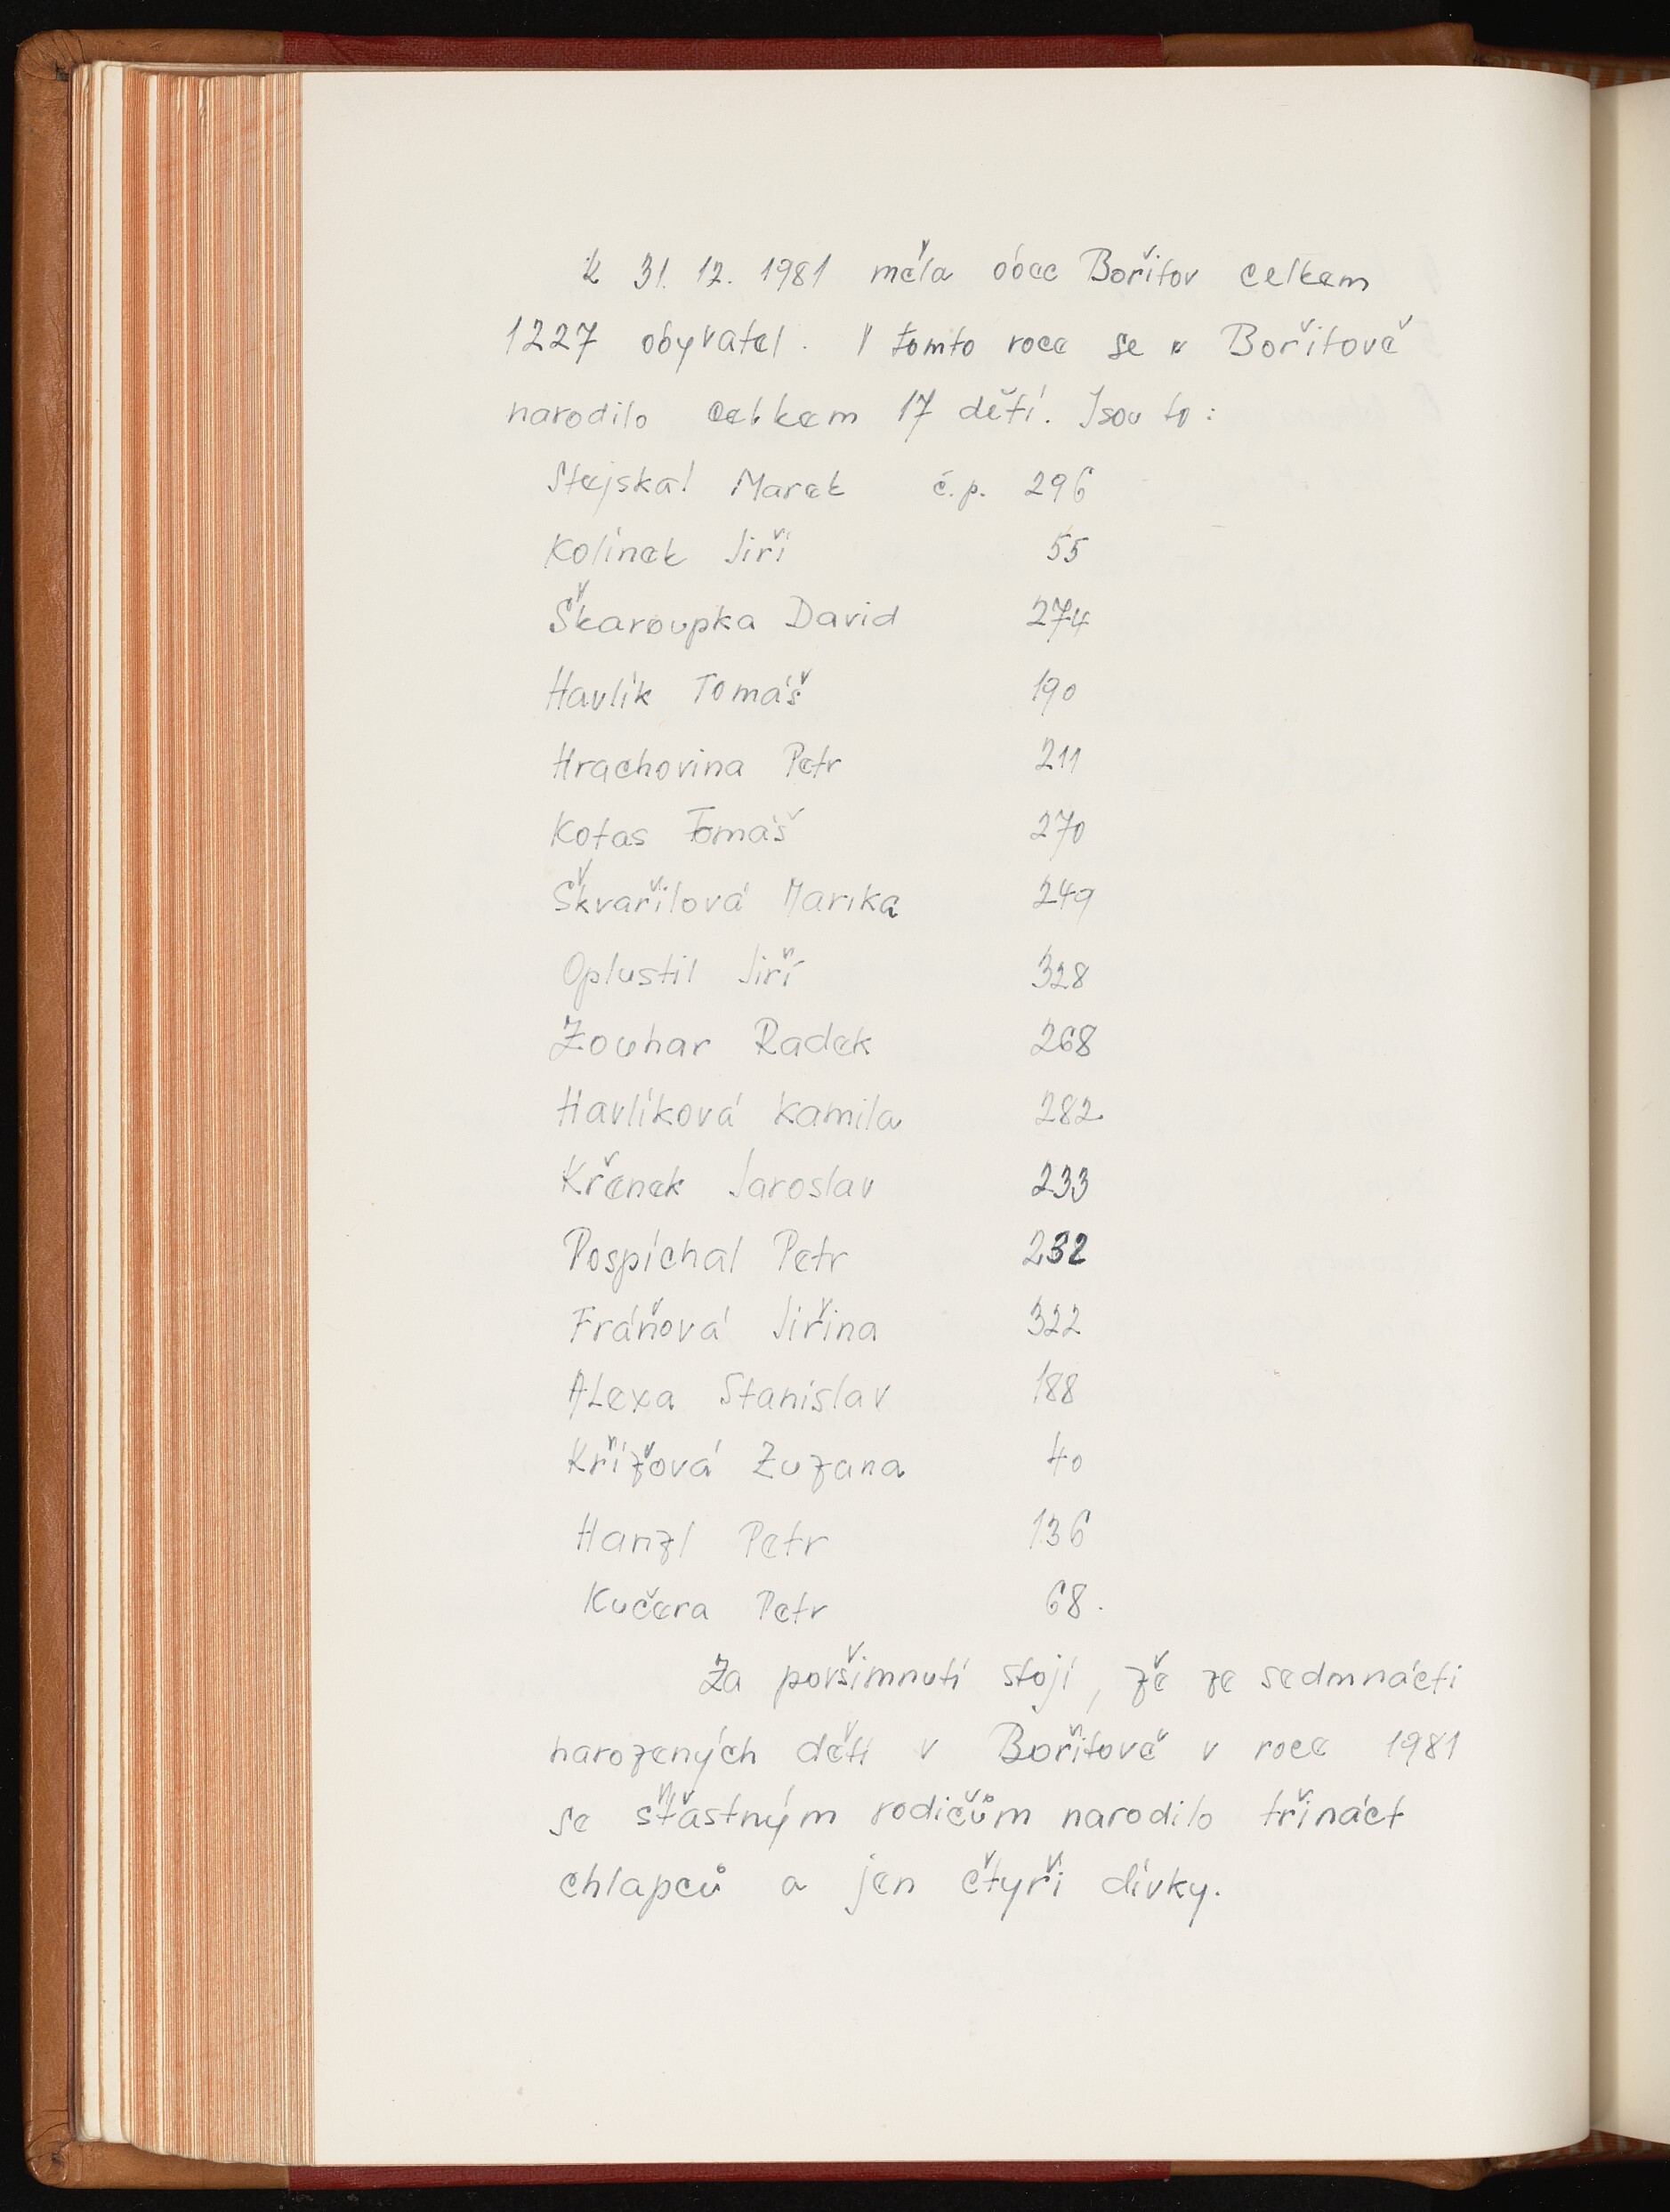 K 31. 12. 1981 měla obec Bořitov celkem
1227 obyvatel. V tomto roce se v Bořitově
narodilo celkem 17 dětí. Jsou to:
Stejskal Marek č.p. 296
Kolínek Jiří 55
Škaroupka David 274
Havlík Tomáš 190
Hrachovina Petr 211
Kotas Tomáš 270
Škvařilová Marika 249
Oplustil Jiří 328
Zouhar Radek 268
Havlíková Kamila 282
Křenek Jaroslav 233
Pospíchal Petr 232
Fráňová Jiřina 322
Alexa Stanislav 188
Křížová Zuzana 40
Hanzl Petr 136
Kučera Petr 68.
Za povšimnutí stojí, že ze sedmnácti
narozených dětí v Bořitově v roce 1981
se šťastným rodičům narodilo třináct
chlapců a jen čtyři dívky.